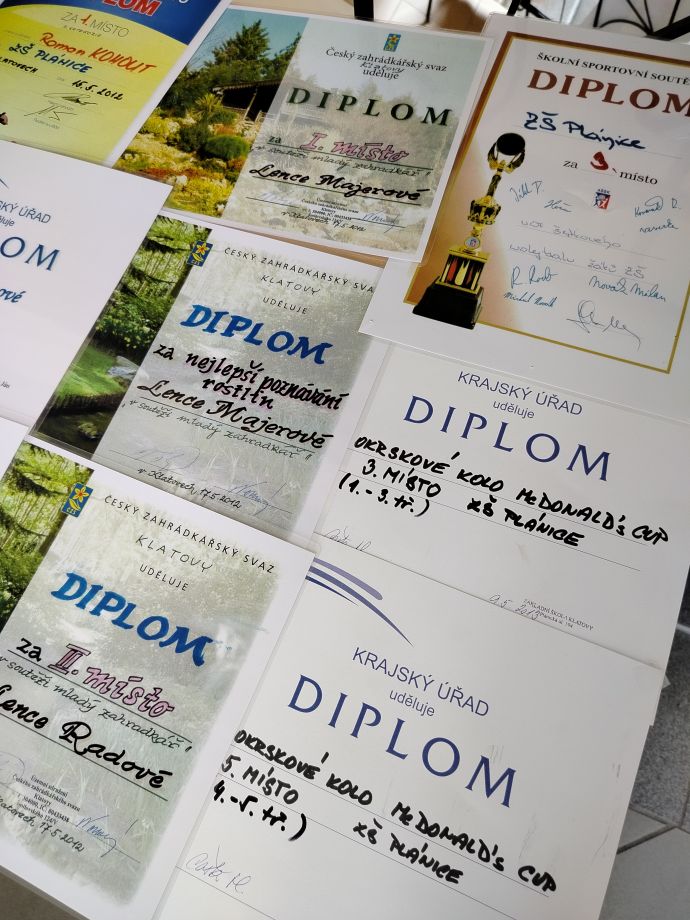 DIPLOM
ZA 1. MÍSTO
Roman KOHOUT
ZŠ PLÁNICE
16.5.2012
Český zahrádkářský svaz
Klatovy
uděluje
DIPLOM
za I. místo
v soutěži mladý zahrádkář"
Lence Majerové
17.5.2012
ŠKOLNÍ SPORTOVNÍ SOUTĚ
DIPLOM
ZŠ Plánice
za 3. místo
volejbalu žáků ZŠ
Novák Milan
KRAJSKÝ ÚŘAD
uděluje
DIPLOM
ČESKÝ ZAHRÁDKÁŘSKÝ SVAZ
KLATOVY
UDĚLUJE
DIPLOM
za nejlepší poznávání
rostlin
Lence Majerové
„v soutěži mladý zahrádkář"
v Klatovech, 17.5.2012
KRAJSKÝ ÚŘAD
uděluje
DIPLOM
OKRSKOVÉ KOLO McDONALD'S CUP
3. MÍSTO ZŠ PLÁNICE
(1.-3. tř.)
9.5.2013
ZÁKLADNÍ ŠKOLA KLATOVY
ČESKÝ ZAHRÁDKÁŘSKÝ SVAZ
KLATOVY
UDĚLUJE
DIPLOM
za II. místo
v soutěži mladý zahrádkář"
Lence Radové
Územní sdružení
Českého zahrádkářského svazu
Klatovy
Klatovech, 17.5.2012
KRAJSKÝ ÚŘAD
uděluje
DIPLOM
OKRSKOVÉ KOLO McDONALD'S CUP
5. MÍSTO ZŠ PLÁNICE
(4.-5. tř.)